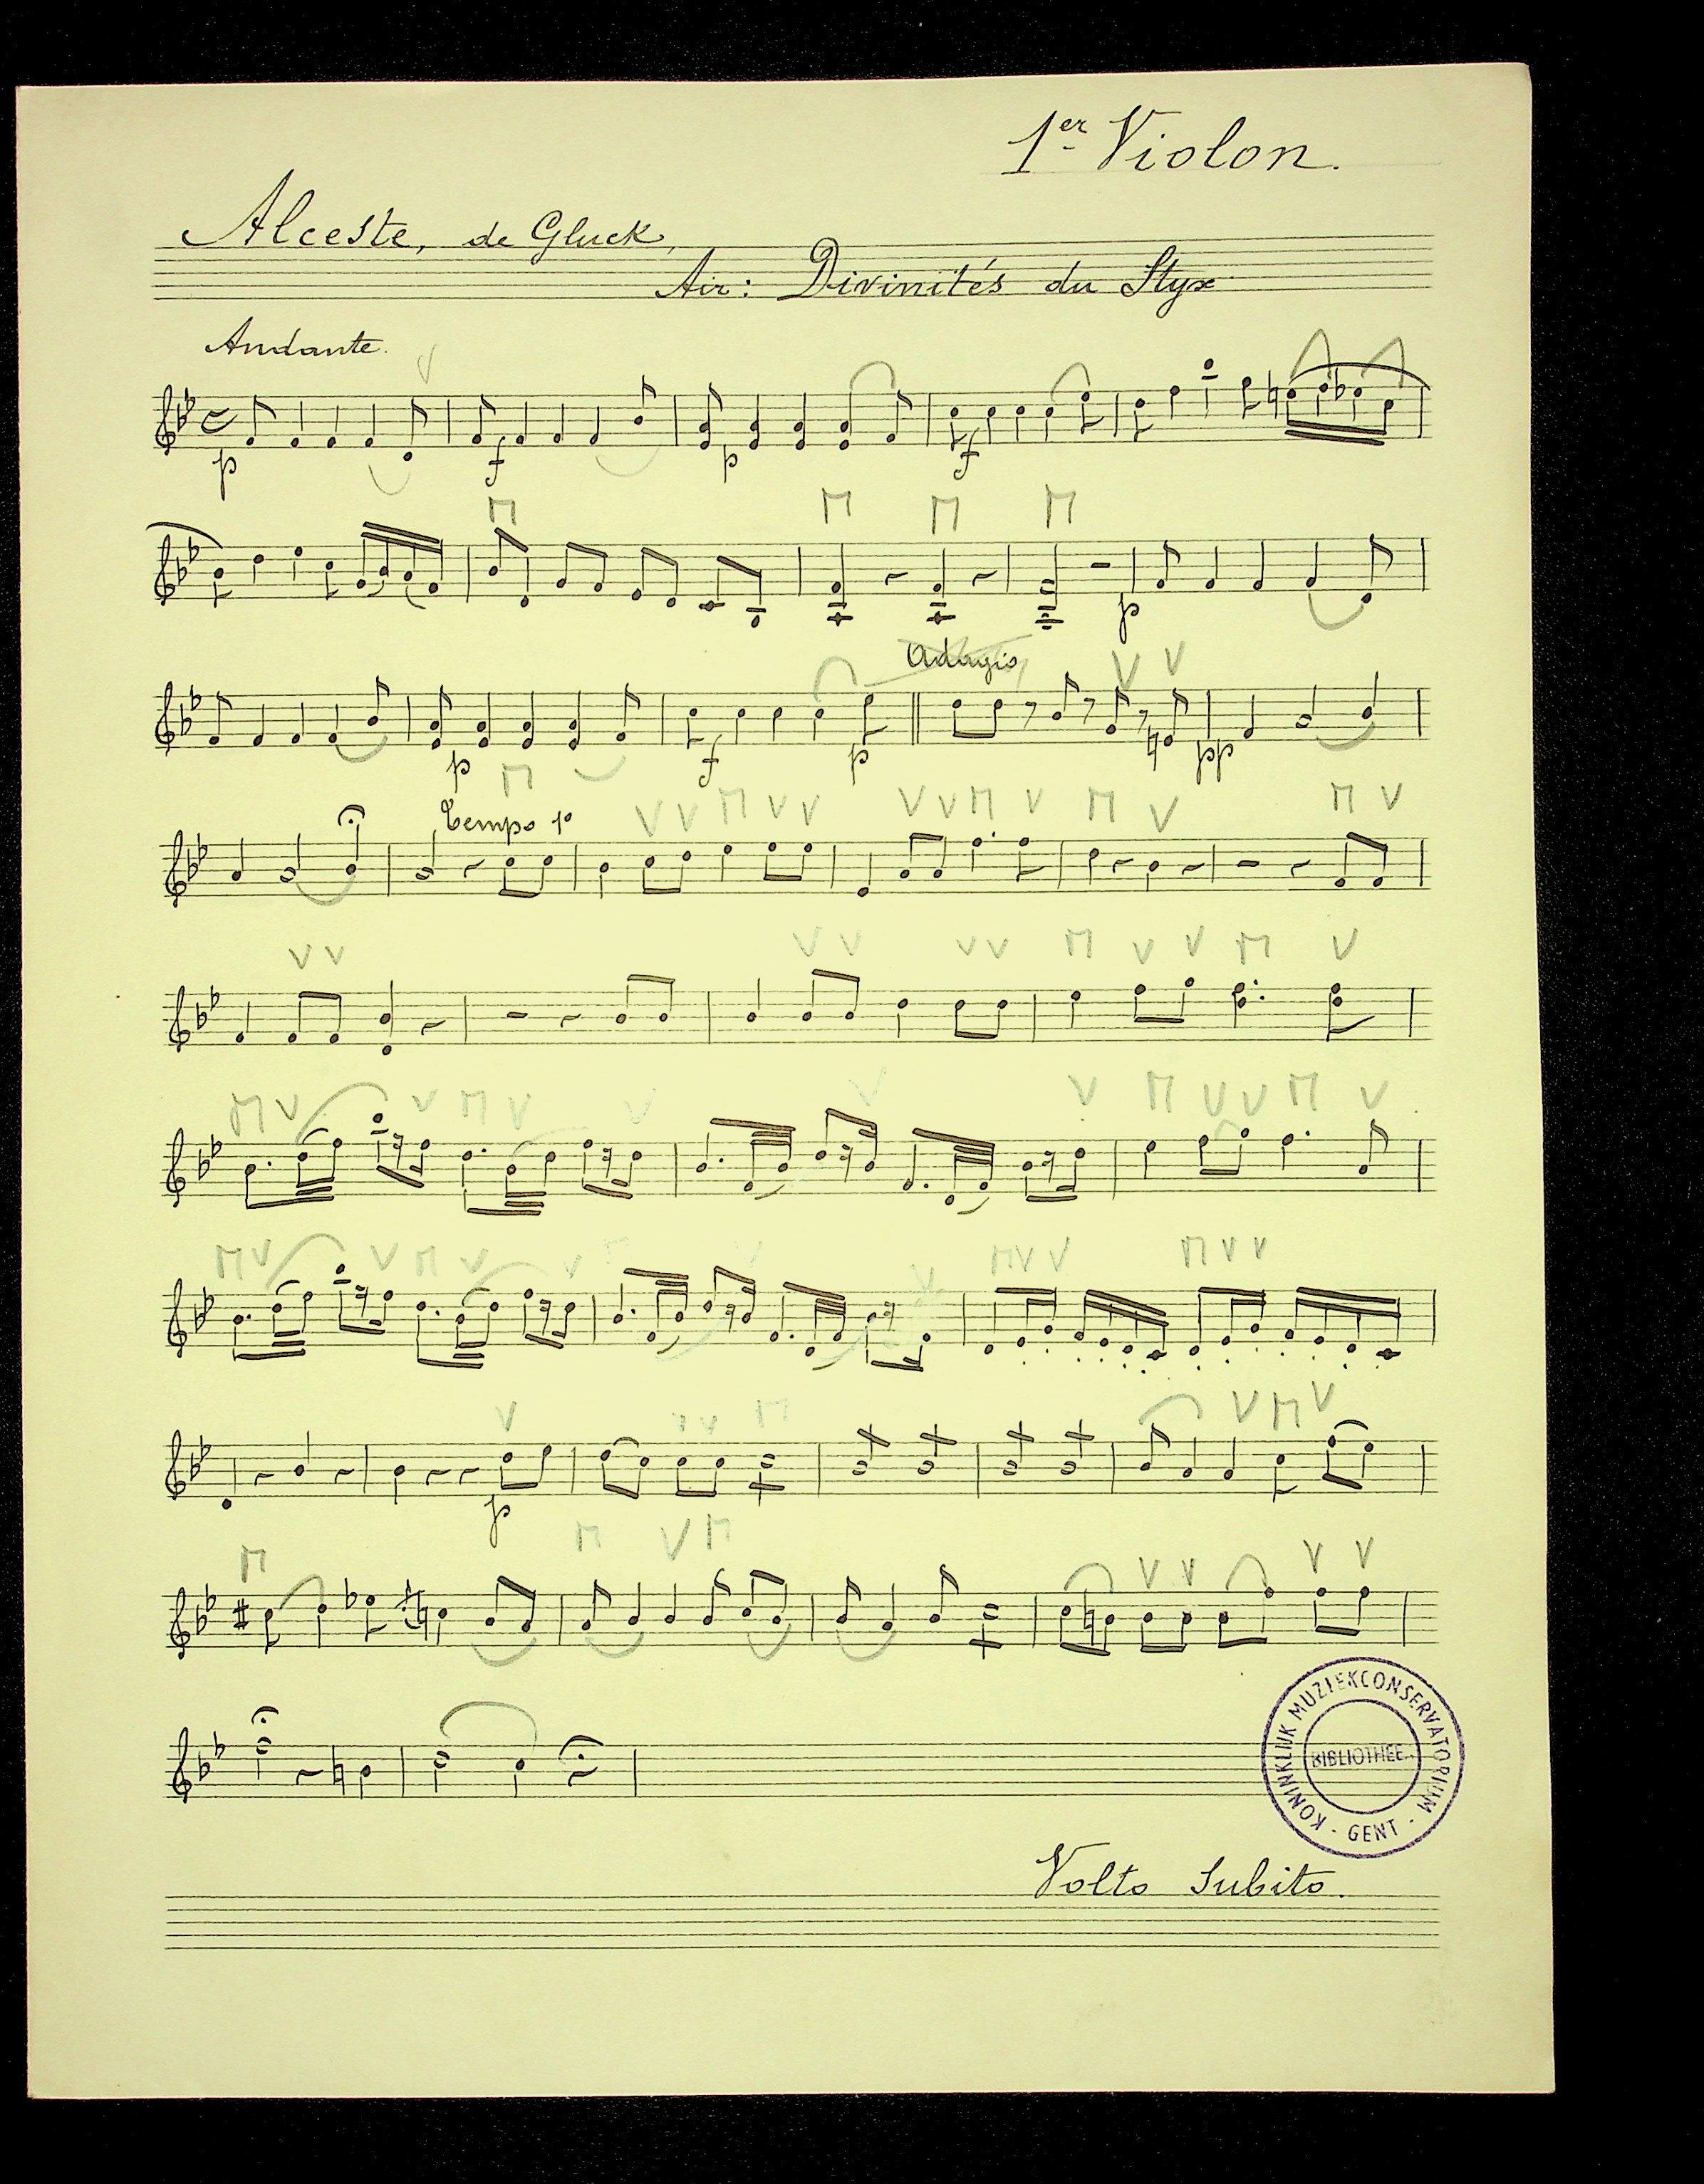 1er Violon.
Alceste, de Gluck,
Air: Divinités du Styx
Andante.
p f p f
p
Adagio
p f p pp
Tempo 1º
p
KONINKLIJK MUZIEKCONSERVATORIUM - GENT -
BIBLIOTHEE
Volto Subito.